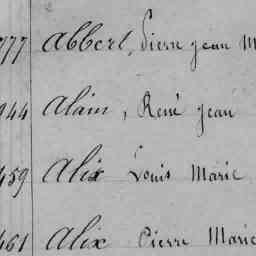 777 Abbert, Pierre jean M
944 Alain, René jean
459 Alix Louis Marie
461 Alix Pierre Marie